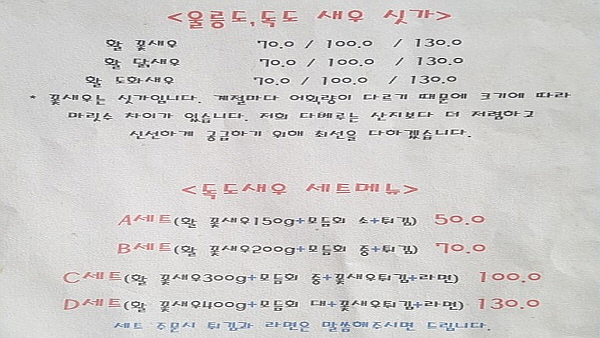 <울릉도,독도 새우 싯가>
활 꽃새우 70.0 / 100.0 / 130.0
활 닭새우 70.0 / 100.0 / 130.0
활 도화새우 70.0 / 100.0 / 130.0
* 꽃새우는 싯가입니다. 계절마다 어획량이 다르기 때문에 크기에 따라
마릿수 차이가 있습니다. 저희 다베루는 산지보다 더 저렴하고
신선하게 공급하기 위해 최선을 다하겠습니다.
<독도새우 세트메뉴>
A세트(활 꽃새우150g+모듬회 소+튀김) 50.0
B세트(활 꽃새우200g+모듬회 중+튀김) 70.0
C세트(활 꽃새우300g+모듬회 중+꽃새우튀김+라면) 100.0
D세트(활 꽃새우400g+모듬회 대+꽃새우튀김+라면) 130.0
세트 주문시 튀김과 라면은 말씀해주시면 드립니다.